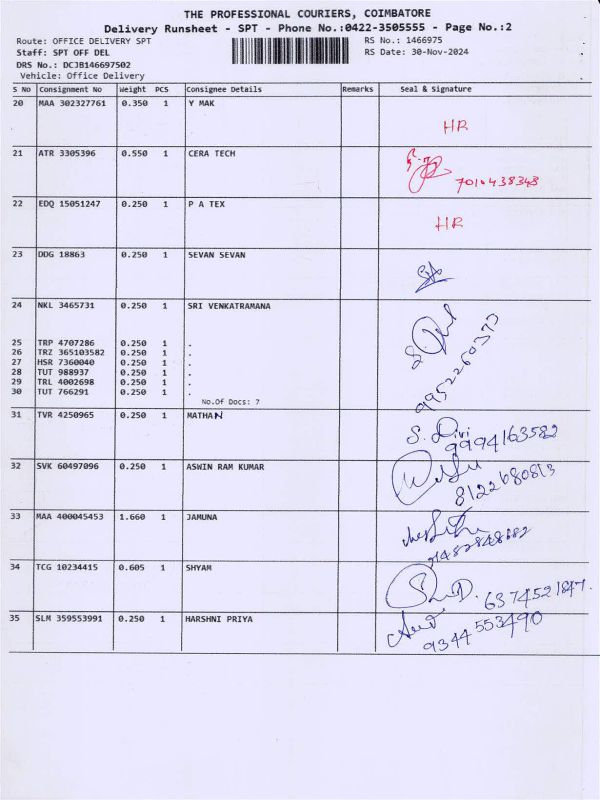 THE PROFESSIONAL COURIERS, COIMBATORE
Delivery Runsheet - SPT - Phone No.:0422-3505555 - Page No.:2
Route: OFFICE DELIVERY SPT RS No.: 1466975
Staff: SPT OFF DEL RS Date: 30-Nov-2024
DRS No.: DCJB146697502
Vehicle: Office Delivery
S No Consignment No Weight PCS Consignee Details Remarks Seal & Signature
20 MAA 302327761 0.350 1 Y MAK
HR
21 ATR 3305396 0.550 1 CERA TECH
7010438348
22 EDQ 15051247 0.250 1 P A TEX
HR
23 DDG 18863 0.250 1 SEVAN SEVAN
24 NKL 3465731 0.250 1 SRI VENKATRAMANA
25 TRP 4707286 0.250 1 .
26 TRZ 365103582 0.250 1 .
27 HSR 7360040 0.250 1 .
28 TUT 988937 0.250 1 .
29 TRL 4002698 0.250 1 .
30 TUT 766291 0.250 1 .
No.Of Docs: 7
9952260373
31 TVR 4250965 0.250 1 MATHAN
S. Divi
9994163582
32 SVK 60497096 0.250 1 ASWIN RAM KUMAR
8122680813
33 MAA 400045453 1.660 1 JAMUNA
34 TCG 10234415 0.605 1 SHYAM
6374521847.
35 SLM 359553991 0.250 1 HARSHNI PRIYA
9344553490